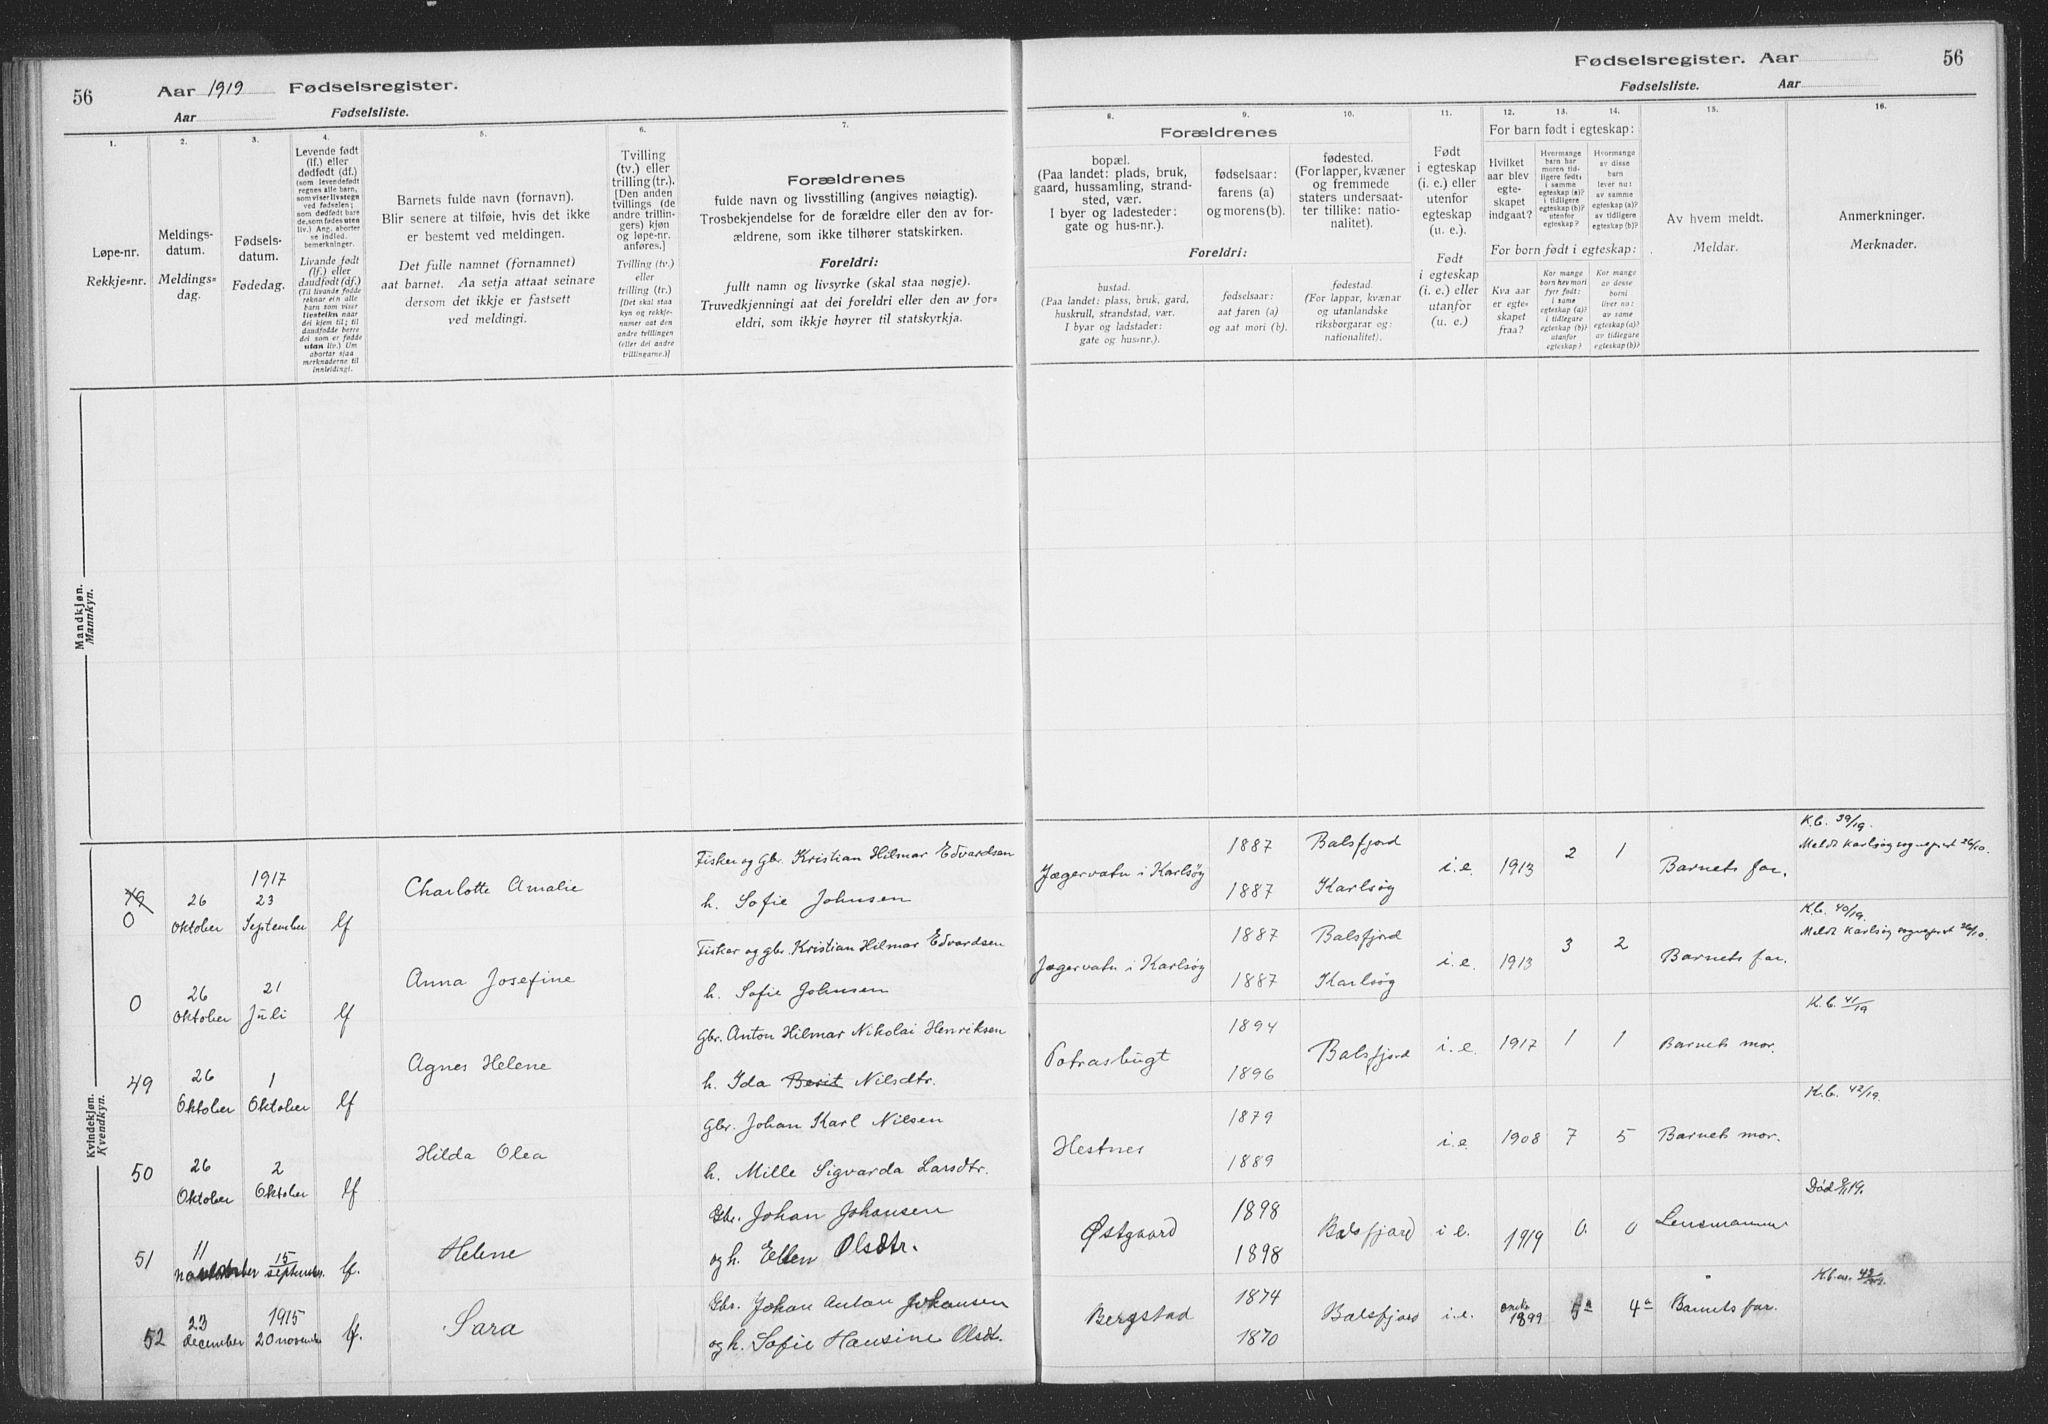 56
Aar 1919 Fødselsregister.
Aar Fødselsliste.
1.
2.
3.
4.
5.
6.
7.
Løpe-nr.
Rekkje=nr.
Meldings-
datum.
Meldings=
dag.
Fødsels-
datum.
Fødedag.
Levende født
(lf.) eller
dødfødt (df.)
(som levendefødt
regnes alle barn,
som viser livstegn
ved fødselen;
som dødfødt bare
de, som fødes uten
liv.) Ang. aborter
se indled.
bemerkninger.
Livande født
(lf.) eller
daudfødt (df.)
(Til livande fødde
reknar ein alle
barn som viser
livsteikn naar
dei kjem til; til
daudfødde berre
dei som er fødde
utan liv.) Um
abortar sjaa
merknaderne til
innleidingi.
Barnets fulde navn (fornavn).
Blir senere at tilføie, hvis det ikke
er bestemt ved meldingen.
Det fulle namnet (fornamnet)
aat barnet. Aa setja attaat seinare
dersom det ikkje er fastsett
ved meldingi.
Tvilling
(tv.) eller
trilling (tr.).
[Den anden
tvillings (de
andre trillin-
gers) kjøn
og løpe-nr.
anføres.]
Tvilling (tv.)
eller
trilling (tr.)
[Det skal staa
kyn og rekkje-
numer aat den
andre tvillingen
(eller dei andre
trillingarne.)]
Forældrenes
fulde navn og livsstilling (angives nøiagtig).
Trosbekjendelse for de forældre eller den av for-
ældrene, som ikke tilhører statskirken.
Foreldri:
fullt namn og livsyrke (skal staa nøgje).
Truvedkjenningi aat dei foreldri eller den av for=
eldri, som ikkje høyrer til statskyrkja.
Mandkjøn.
Mannkyn.
Kvindekjøn.
Kvendkyn.
49
0
26
Oktober
1917
23
September
lf
Charlotte Amalie
Fisker og gbr. Kristian Hilmar Edvardsen
h. Sofie Johnsen
0
26
Oktober
21
Juli
lf
Anna Josefine
Fisker og gbr. Kristian Hilmar Edvardsen
h. Sofie Johnsen
49
26
Oktober
1
Oktober
lf
Agnes Helene
Gbr. Anton Hilmar Nikolai Henriksen
h. Ida Berit Nilsdtr.
50
26
Oktober
2
Oktober
lf
Hilda Olea
Gbr. Johan Karl Nilsen
h. Mille Sigvarda Larsdtr.
51
11
november
15
september
lf.
Helene
Gbr. Johan Johansen
og h. Ellen Olsdtr.
52
23
december
1915
20 november
lf.
Sara
Gbr. Johan Anton Johansen
og h. Sofie Hansine Olsdt.
Fødselsregister. Aar
56
Fødselsliste. Aar
8.
9.
10.
11.
12.
13.
14.
15.
16.
Forældrenes
bopæl.
(Paa landet: plads, bruk,
gaard, hussamling, strand-
sted, vær.
I byer og ladesteder:
gate og hus-nr.).
fødselsaar:
farens (a)
og morens (b).
fødested.
(For lapper, kvæner
og fremmede
staters undersaat-
ter tillike: natio-
nalitet).
Foreldri:
bustad.
(Paa landet: plass, bruk, gard,
huskrull, strandstad, vær.
I byar og ladstader:
gate og hus=nr.).
fødselsaar:
aat faren (a)
og aat mori (b).
fødestad.
(For lappar, kvænar
og utanlandske
riksborgarar og:
nationalitet).
Født
i egteskap
(i. e.) eller
utenfor
egteskap
(u. e.).
Født
i egteskap
(i. e.) eller
utanfor
(u. e.)
For barn født i egteskap:
Hvilket
aar blev
egte-
skapet
indgaat?
Hvormange
barn har
moren tid-
ligere født:
i samme
egteskap (a)?
i tidligere
egteskap (b)?
utenfor
egteskap?
Hvormange
av disse
barn
lever nu:
av samme
egteskap (a)?
av tidligere
egteskap (b)?
For born født i egteskap:
Kva aar
er egte=
skapet
fraa?
Kor mange
born hev mori
fyrr født:
i same
egteskap (a)?
i tidlegare
egteskap (b)?
utanfor
egteskap?
Kor mange
av desse
borni
liver no:
av same
egteskap (a)?
av tidlegare
egteskap (b)?
Av hvem meldt.
Meldar.
Anmerkninger.
Merknader.
Jægervatn i Karlsøy
1887
1887
Balsfjord
Karlsøy
i.e.
1913
2
1
Barnets far.
K.b. 39/19.
Meldt Karlsøy sogneprest 26/10.
Jægervatn i Karlsøy
1887
1887
Balsfjord
Karlsøy
i.e.
1913
3
2
Barnets far.
K.b. 40/19.
Meldt Karlsøy sogneprest 26/10.
Potrasbugt
1894
1896
Balsfjord
i.e.
1917
1
1
Barnets mor.
K.b. 41/19
Hestnes
1879
1889
i.e
1908
7
5
Barnets mor.
K.b. 42/19.
Østgaard
1898
1898
Balsfjord
i e.
1919
0.
0
Lensmannen
Bergstad
1874
1870
Balsfjord
i.e.
1899
5a
4a
Barnets far.